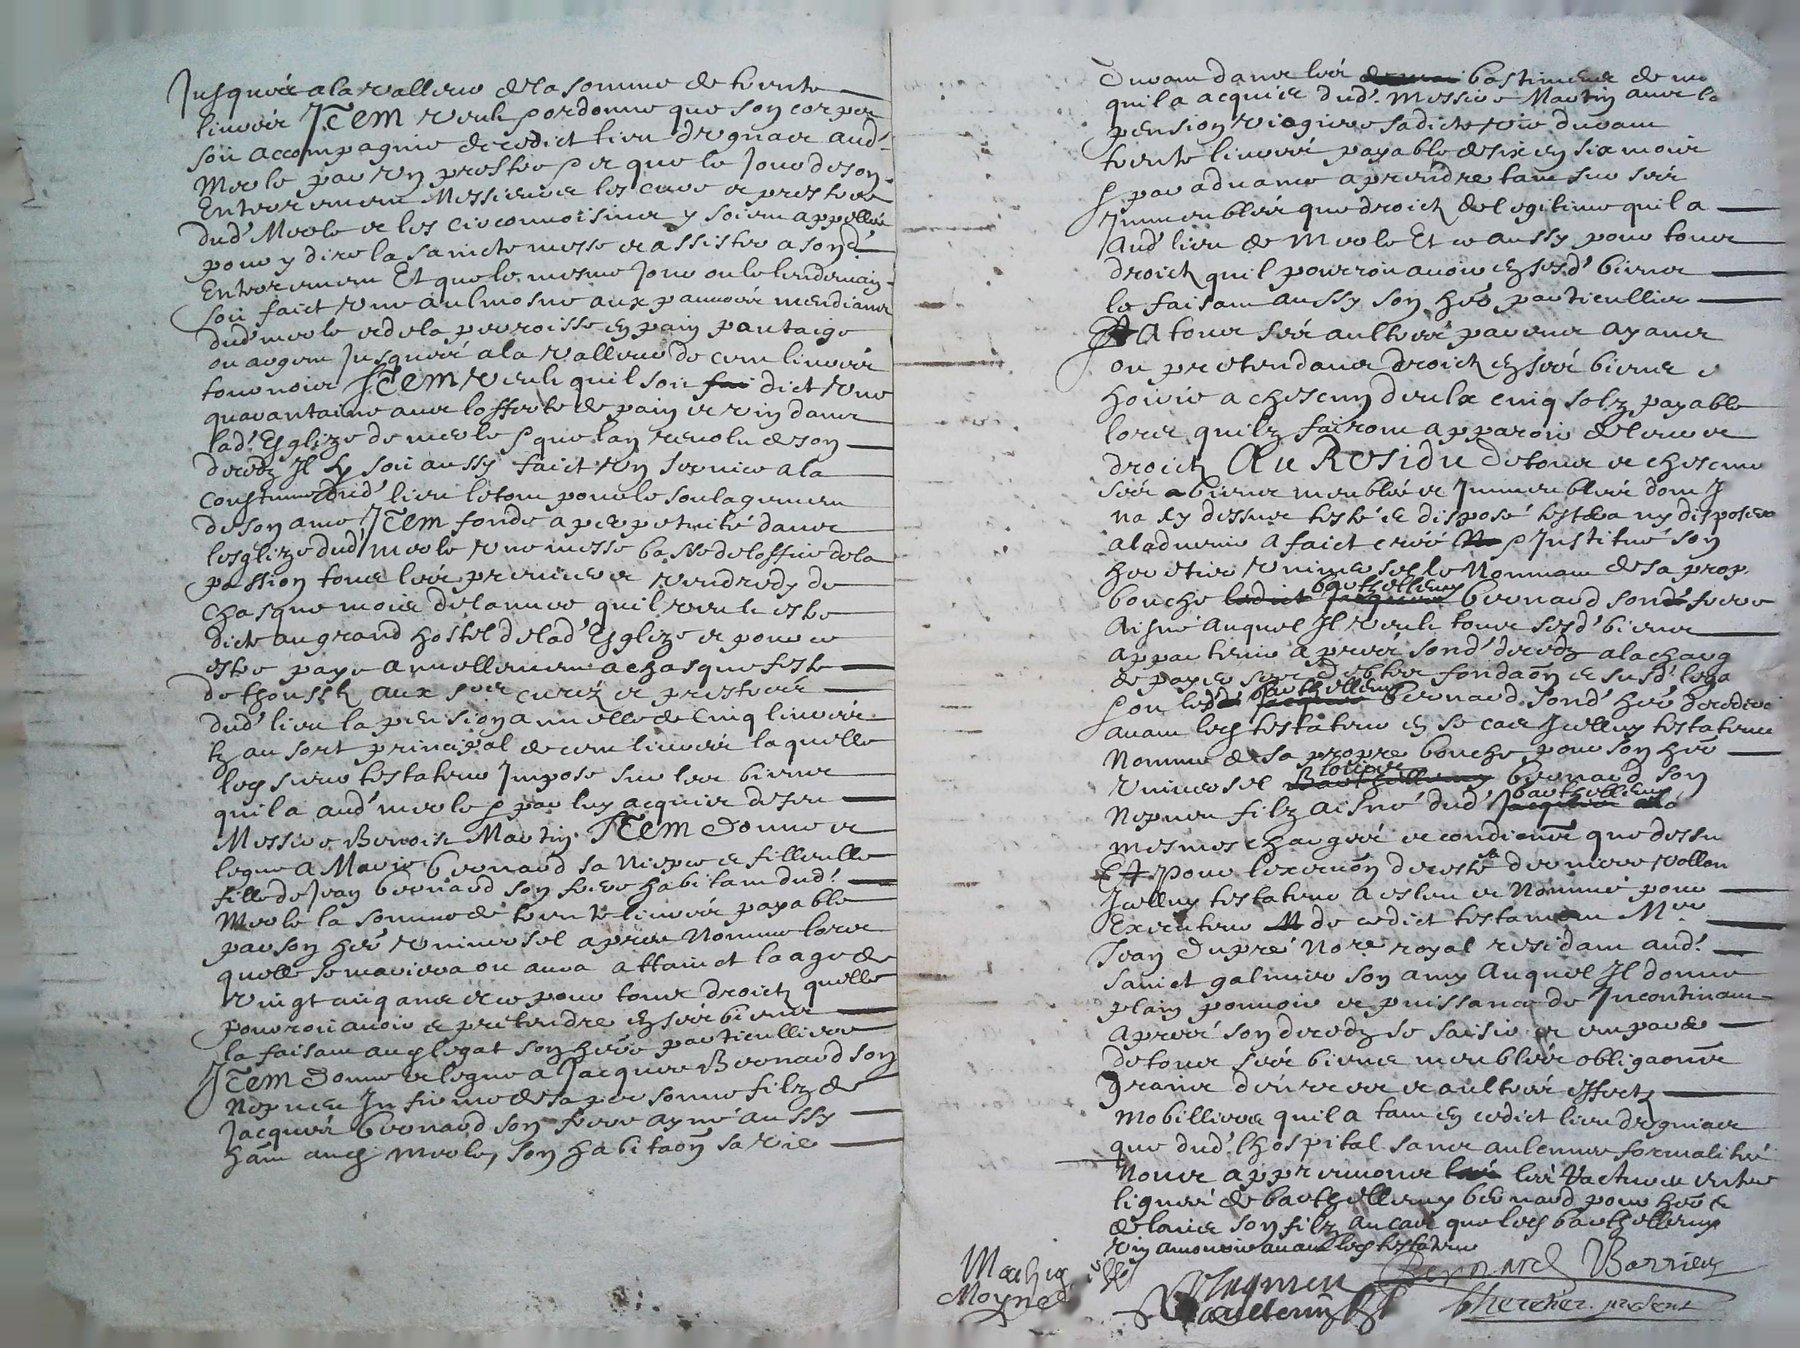 Jusques a la valleur de la somme de trente
livres Item veult & ordonne que son corps
soit accompagné de cedict lieu d'eguiar aud.
Merle par un prestre & que le jour de son
Enterrement Messieurs les cure et prestres
dud' Merle et les circonvoisins y soient appellés
pour y dire la saincte messe et assister a sond'
Enterrement Et que le mesme jour ou le lendemain
soit faict une aulmosne aux pauvres mendians
dud' merle et de la parroisse en pain partaige
ou argent jusques a la valleur de cent livres
tournois Item veult quil soit dict une
quarantaine avec lofferte de pain et vin dans
lad' Esglize de merle & que lan revolu de son
decedz Il soit aussy faict un service a la
coustume dud' lieu le tout pour le soulagement
de son ame Item fonde a perpetuité dans
lesglize dud' merle une messe basse de loffice de la
passion tous les premiers vendredy de
chasque mois de lannee quil veult estre
dicte au grand hostel de lad' Esglize et pour ce
estre paye annuellement a chasque feste
de thoussts aux srs curéz et prestres
dud' lieu la pension annuelle de cinq livres
tz au sort principal de cent livres laquelle
led sieur testateur Impose sur les biens
quil a aud' merle & par luy acquis de feu
Messire Benoist Martin Item donne et
legue a Marie bernard sa niepce et filleulle
fille de Jean bernard son frere habitant dud'
Merle la somme de trente livres payable
par son her universel apres nomme lors
quelle se mariera ou aura attainct laage de
vingt cinq ans et ce pour tous droictz quelle
pourroit avoir et pretendre en ses biens
la faisant aud legat son here particulliere
Item donne et legue a Jacques Bernard son
nepveu Infirme de sa personne filz de
Jacques bernard son frere ayné aussy
hant aud merle, son habitaon sa vie
Durant dans les bastiments de
quil a acquis dud' Messire Martin avec la
pension viagere sadicte vie durant
trente livres payable de six en six mois
& par advance a prendre tant sur ses
Immeubles que droictz de legitime quil a
aud' lieu de Merle Et ce aussy pour tous
droictz quil pourroit avoir en sesd' biens
le faisant aussy son her particullier
Et A tous ses aultres parens ayans
ou pretendans droictz en ses biens
hoirie a chescun deulx cinq solz payable
lors quilz feront apparoir de leurs
droictz Au Residu de tous et chescuns
ses biens meubles et Immeubles dont Il
na cy dessus testé et disposé teste na ny dispose
a ladvenir a faict creé & Institué son
heretier universel Nommant de sa prop.
bouche barthellemy bernard sond' frere
Aisné auquel Il veult tous sesd' biens
appartenir apres sond' decedz a la charge
de payer ses debtes fondaon et susd' legas
& ou led' barthellemy bernard sond' her decederoit
avant led testateur en ce cas Icelluy testateur
nomme de sa propre bouche pour son her
universel louis bernard son
Nepveu filz aisné dud' barthellemy
mesmes charges et condiones que dessus
Et Pour lexecution de ceste sa derniere vollon
Icelluy testateur a esleu et nommé pour
Executeur de cedict testament Mre
Jean Dupré Nore royal residant aud.
sainct galmier son amy Auquel Il donne
plain pouvoir et puissance de Incontinant
apres son decedz se saisir et emparer
de tous ses biens meubles obligaones
grains denrees et aultres effectz
mobilliers quil a tant en cedict lieu deguiar
que dud' lhospital sans aulcunes formalites
Nous approuvons les ratures entre
lignes de barthellemy bernard pour her et
de louis son filz au cas que led barthellemy
vin a mourir avant led testateur
Mathieu
Moynet
Bernard Barrieu
Chercher present